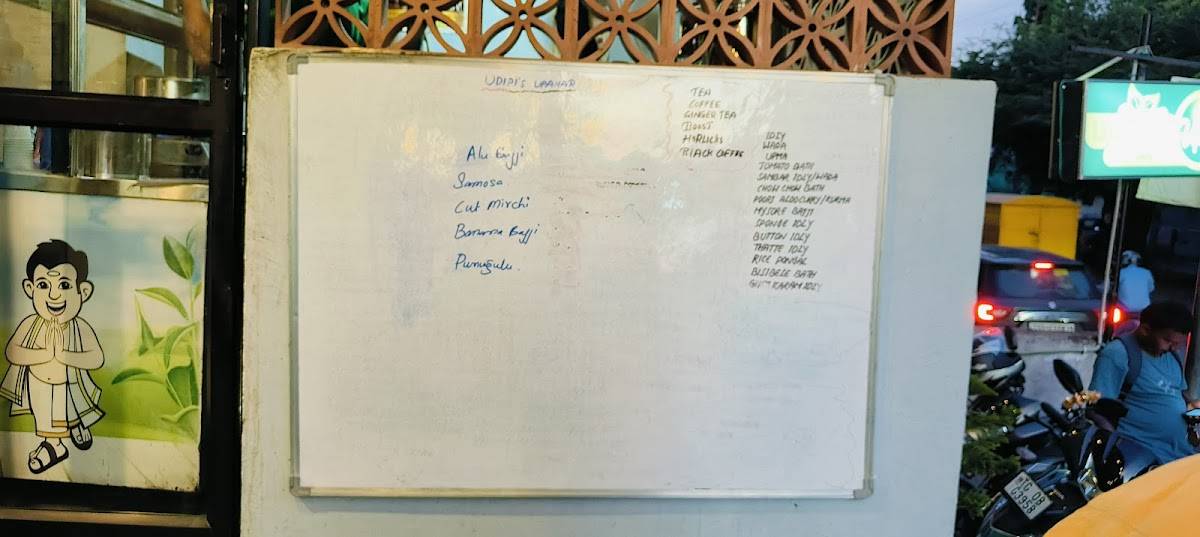 UDIPI'S UPAHAR
TEA
COFFEE
GINGER TEA
BOOST
HORLICKS
BLACK COFFEE
Alu Bajji
Samosa
Cut Mirchi
Banana Bajji
Punugulu.
IDLY
WADA
UPMA
TOMATO BATH
SAMBAR IDLY/WADA
CHOW CHOW BATH
POORI ALOO CURRY/KURMA
MYSORE BAJJI
SPONGE IDLY
BUTTON IDLY
THATTE IDLY
RICE PONGAL
BISIBELE BATH
KARAM IDLY
TG 08